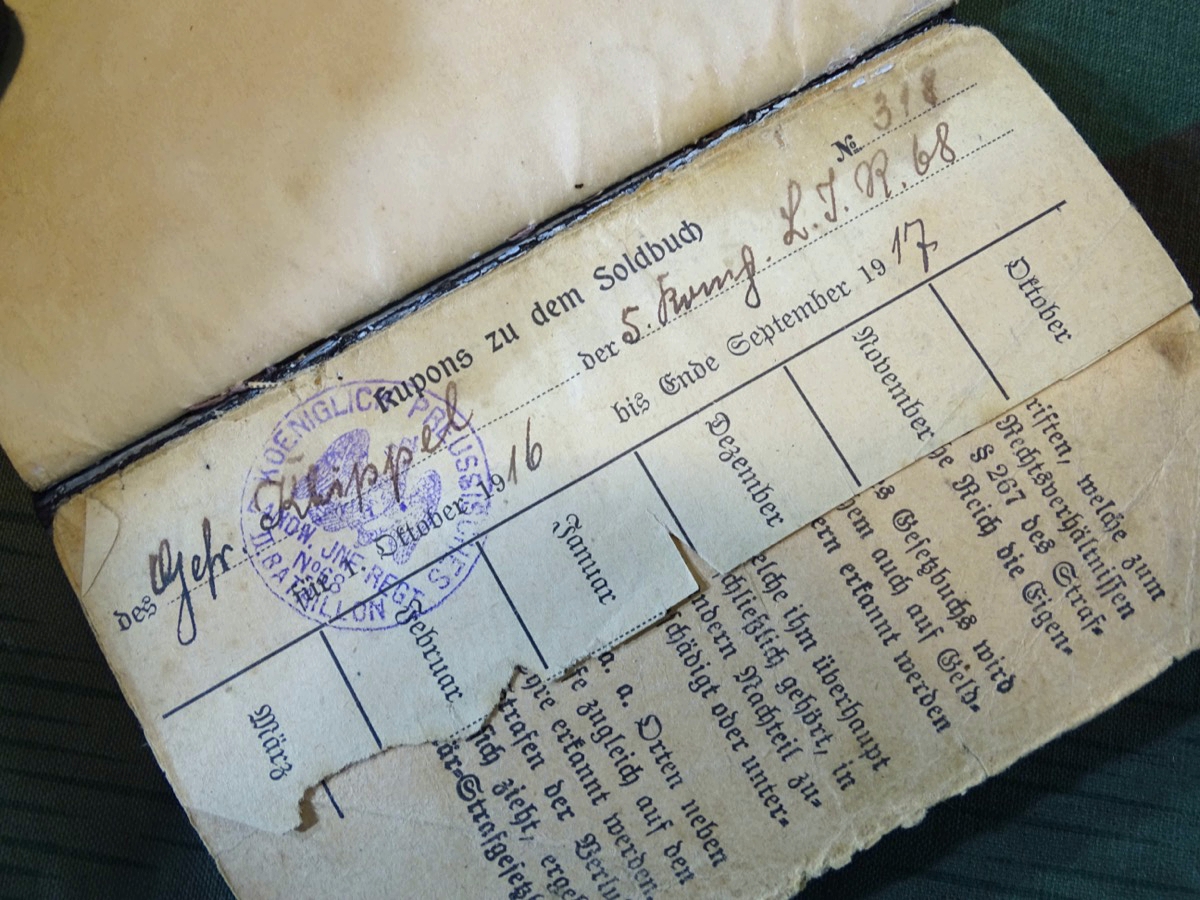 № 318
Kupons zu dem Soldbuch
des Gefr. Klippel der 5. Komp. L. I. R. 68
für 1. Oktober 1916 bis Ende September 1917
März
Februar
Januar
Dezember
November
Oktober
KOENIGLICH PREUSSISCHES
LANDW JNF REGT
No 68
II BATAILLON
riften, welche zum
Rechtsverhältnissen
§ 267 des Straf-
he Reich die Eigen-
s Gesetzbuchs wird
dem auch auf Geld-
ern erkannt werden
elche ihm überhaupt
schließlich gehört, in
ndern Nachteil zu-
chädigt oder unter-
a. a. Orten neben
fe zugleich auf den
hre erkannt werden.
trafen der
sich zieht,
är-Strafgesetzb